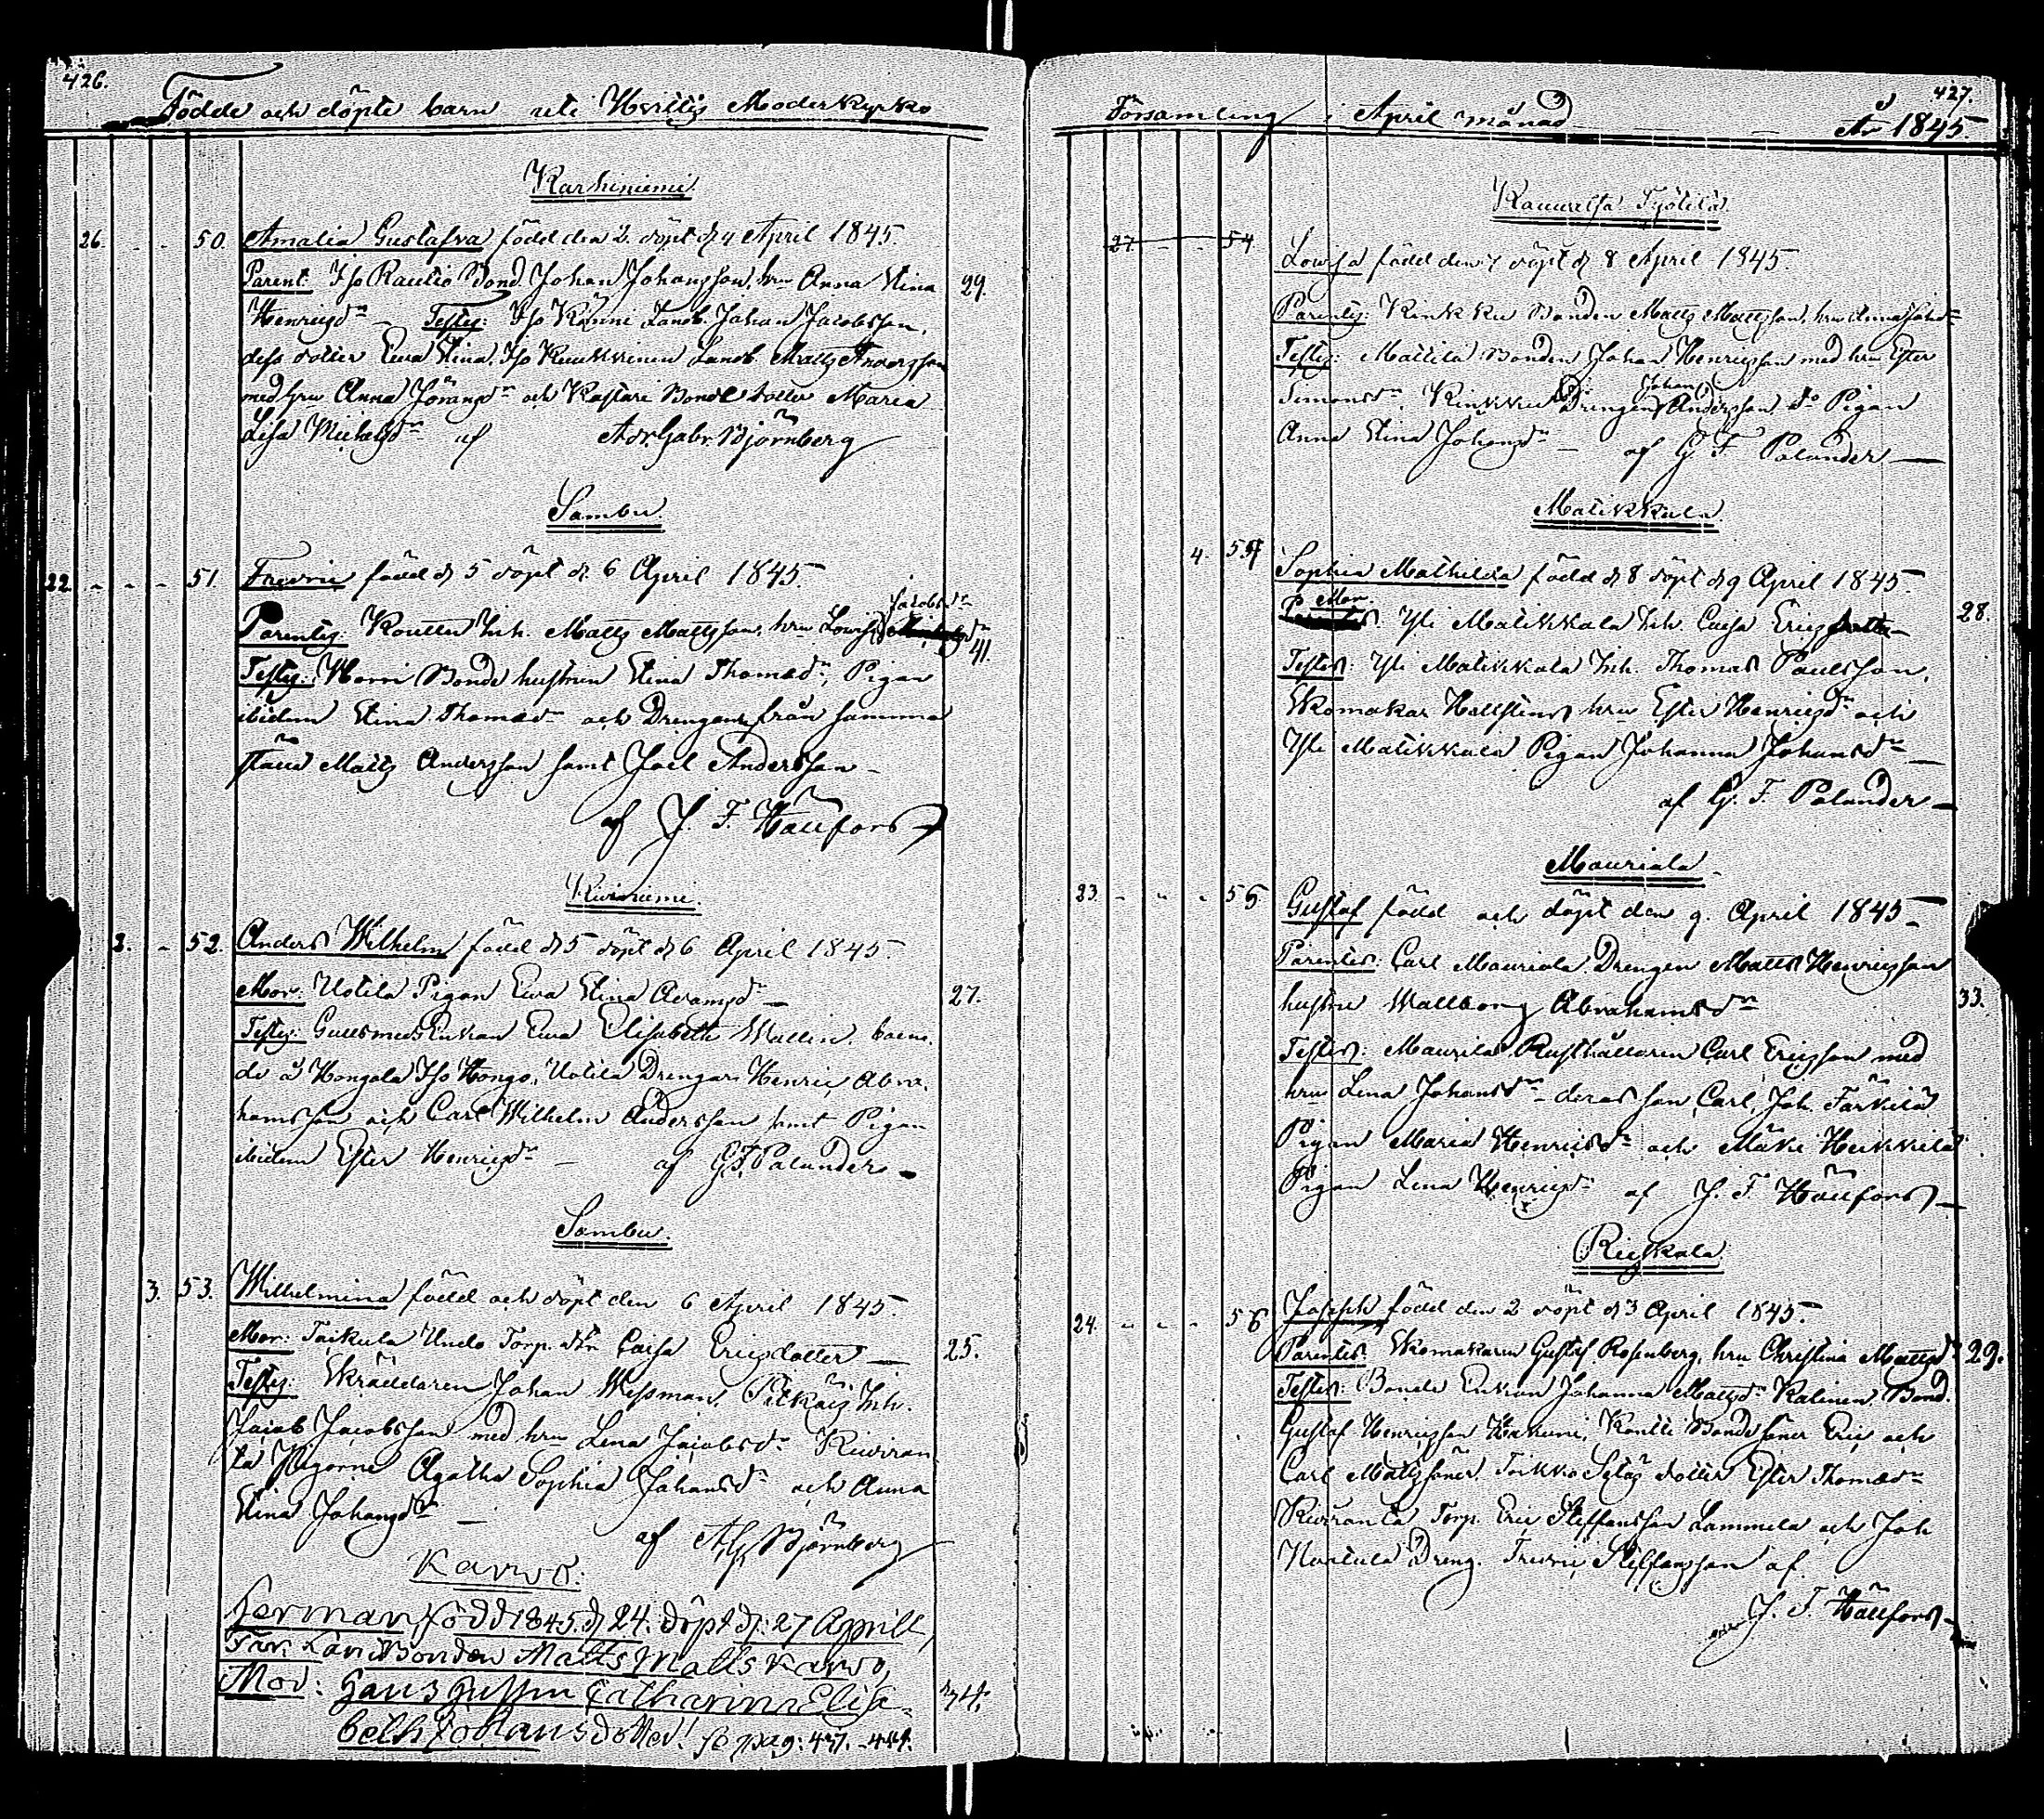 426.
Födde och döpte barn uti Hvittis Moderkyrko
Karhiniemi
26. - - 50. Amalia Gustafva född den 2. döpt d 4 April 1845.
Parent: Iso Rautio Bond. Johan Johansson, hru Anna Stina 29.
Henricsdr Testes: Iso Känni Landb. Johan Jacobsson,
dess dotter Eva Stina, Iso Kuukkinen Landb. Matts Andersson
med hru Anna Göransdr och Kastari Bonde dotter Maria
Lisa Michelsdr af Adr. Gabr. Björnberg
Sambu.
22. - - - 51. Fredric född d 5 döpt d. 6 April 1845.
Jacobsdr
Parentes: Kouttu Inh. Matts Mattsson, hru Lovisa 41.
Testes: Horri Bonde hustrun Stina Thomasdr, Pigan
ibidem Stina Thomasdr och Drengarne från samma
ställe Matts Andersson samt Joel Andersson
af J. F. Hällfors
Kiviniemi.
2. - 52. Anders Wilhelm född d 5 döpt d 6 April 1845.
Mor: Uotila Pigan Eva Stina Adamsdr 27.
Testes: Gullsmeds Enkan Eva Elisabeth Wallin, boen-
de å Hongola Iso Hongo, Uotila Drengar Henric Abra-
hamsson och Carl Wilhelm Andersson samt Pigan
ibidem Ester Henricsdr af G F Palander
Sambu.
3. 53. Wilhelmina född och döpt den 6 April 1845.
Mor: Taikula Undo Torp. dtr Caisa Ericsdotter 25.
Testes: Skräddaren Johan Wessman, Pitkäis Inh.
Jacob Jacobsson med hru Lena Jacobsdr Kiviran-
ta Pigorne Agatha Sophia Johansdr och Anna
Stina Johansdr
af A. G. Björnberg
Karvo.
Herman, född 1845. d 24. döpt d: 27 Aprill,
Far: Landbonden Matts Matts Karvo,
Mod: Hans Hustru Catharina Elisa- 34.
beth Johansdotter! se pag: 437. - 444.
427.
Församling i April månad År 1845
Kauvatsa Työtilä.
27. - - 54 Lovisa född den 7 döpt d 8 April 1845.
Parentes: Kinkku Bonden Matts Mattsson, hru Anna Johdr
Testes: Mattila Bonden Johan Henricsson med hru Ester
Johan
Simonsdr, Kinkku Drengen Andersson do Pigan
Anna Stina Johansdr af G. F. Palander
Matikkala.
4. 54 Sophia Mathilda född d 8 döpt d 9 April 1845.
Mor.
Yli Matikkala Inh. Caisa Ericsdotter 28.
Testes: Yli Matikkala Inh. Thomas Paulsson,
Skomakar Hallstens hru Ester Henricsdr och
Yli Matikkala Pigan Johanna Johansdr
af G. F. Palander
Mauriala
23. - - - 55 Gustaf född och döpt den 9. April 1845
Parentes: Carl Mauriala Drengen Matts Henricsson
hustru Wallborg Abrahamsdr 33.
Testes: Maurila Rusthållaren Carl Ericsson med
hru Lena Johansdr deras son Carl Joh. Färkilä
Pigan Maria Henricsdr och Mäki Heikkilä
Pigan Lena Henricsdr af J. F. Hällfors
Rieskala
24. - - - 56 Joseph född den 2 döpt d 3 April 1845.
Parentes: Skomakaren Gustaf Rosenberg, hru Christina Mattsdr 29.
Testes: Bonde Enkan Johanna Mattsdr Kalinen, Bond.
Gustaf Henricsson Hakuni, Kontti Bonde söner Eric och
Carl Mattssöner. Toikko dotter Ester Thomasdr
Kiviranta Torp. Eric Steffansson Lammela och Joh
Huntula Dreng. Fredric Steffansson af
J. F. Hällfors